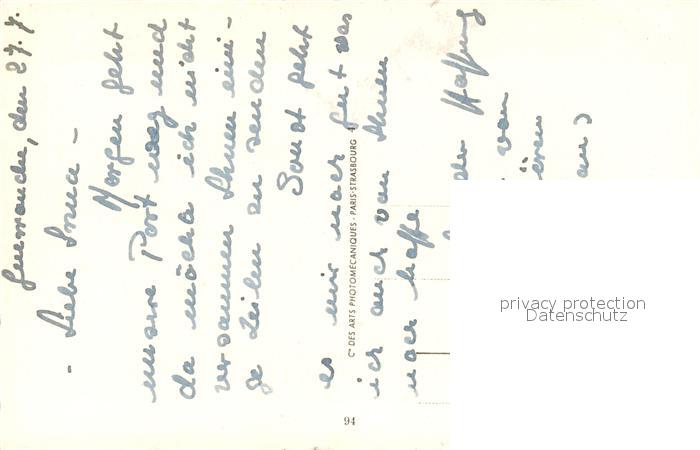 den 27.7.
- Liebe Irma -
Morgen geht
unsere Post weg und
da möchte ich nicht
versäumen Ihnen eini-
ge Zeilen zu senden
Sonst geht
es mir noch gut was
ich auch von Ihnen
noch hoffe
der Hoffnung
von
Cie DES ARTS PHOTOMÉCANIQUES - PARIS-STRASBOURG
94
privacy protection
Datenschutz